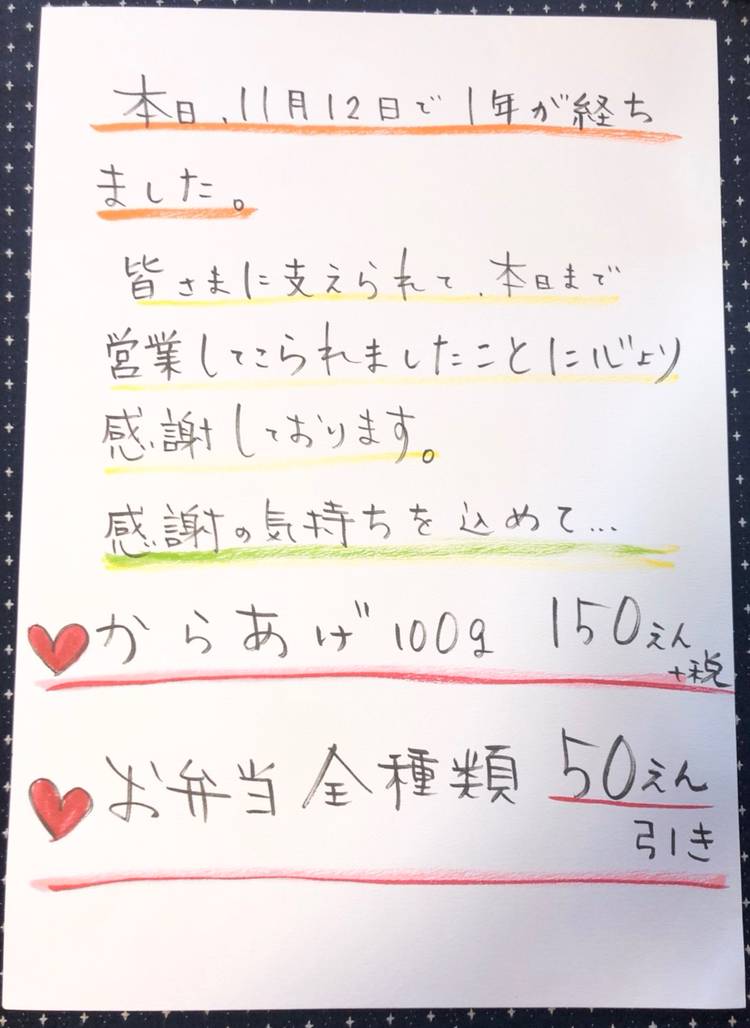 本日、11月12日で1年が経ち
ました。
皆さまに支えられて、本日まで
営業してこられましたことに心より
感謝しております。
感謝の気持ちを込めて...
からあげ 100g 150えん
+税
お弁当 全種類 50えん
引き